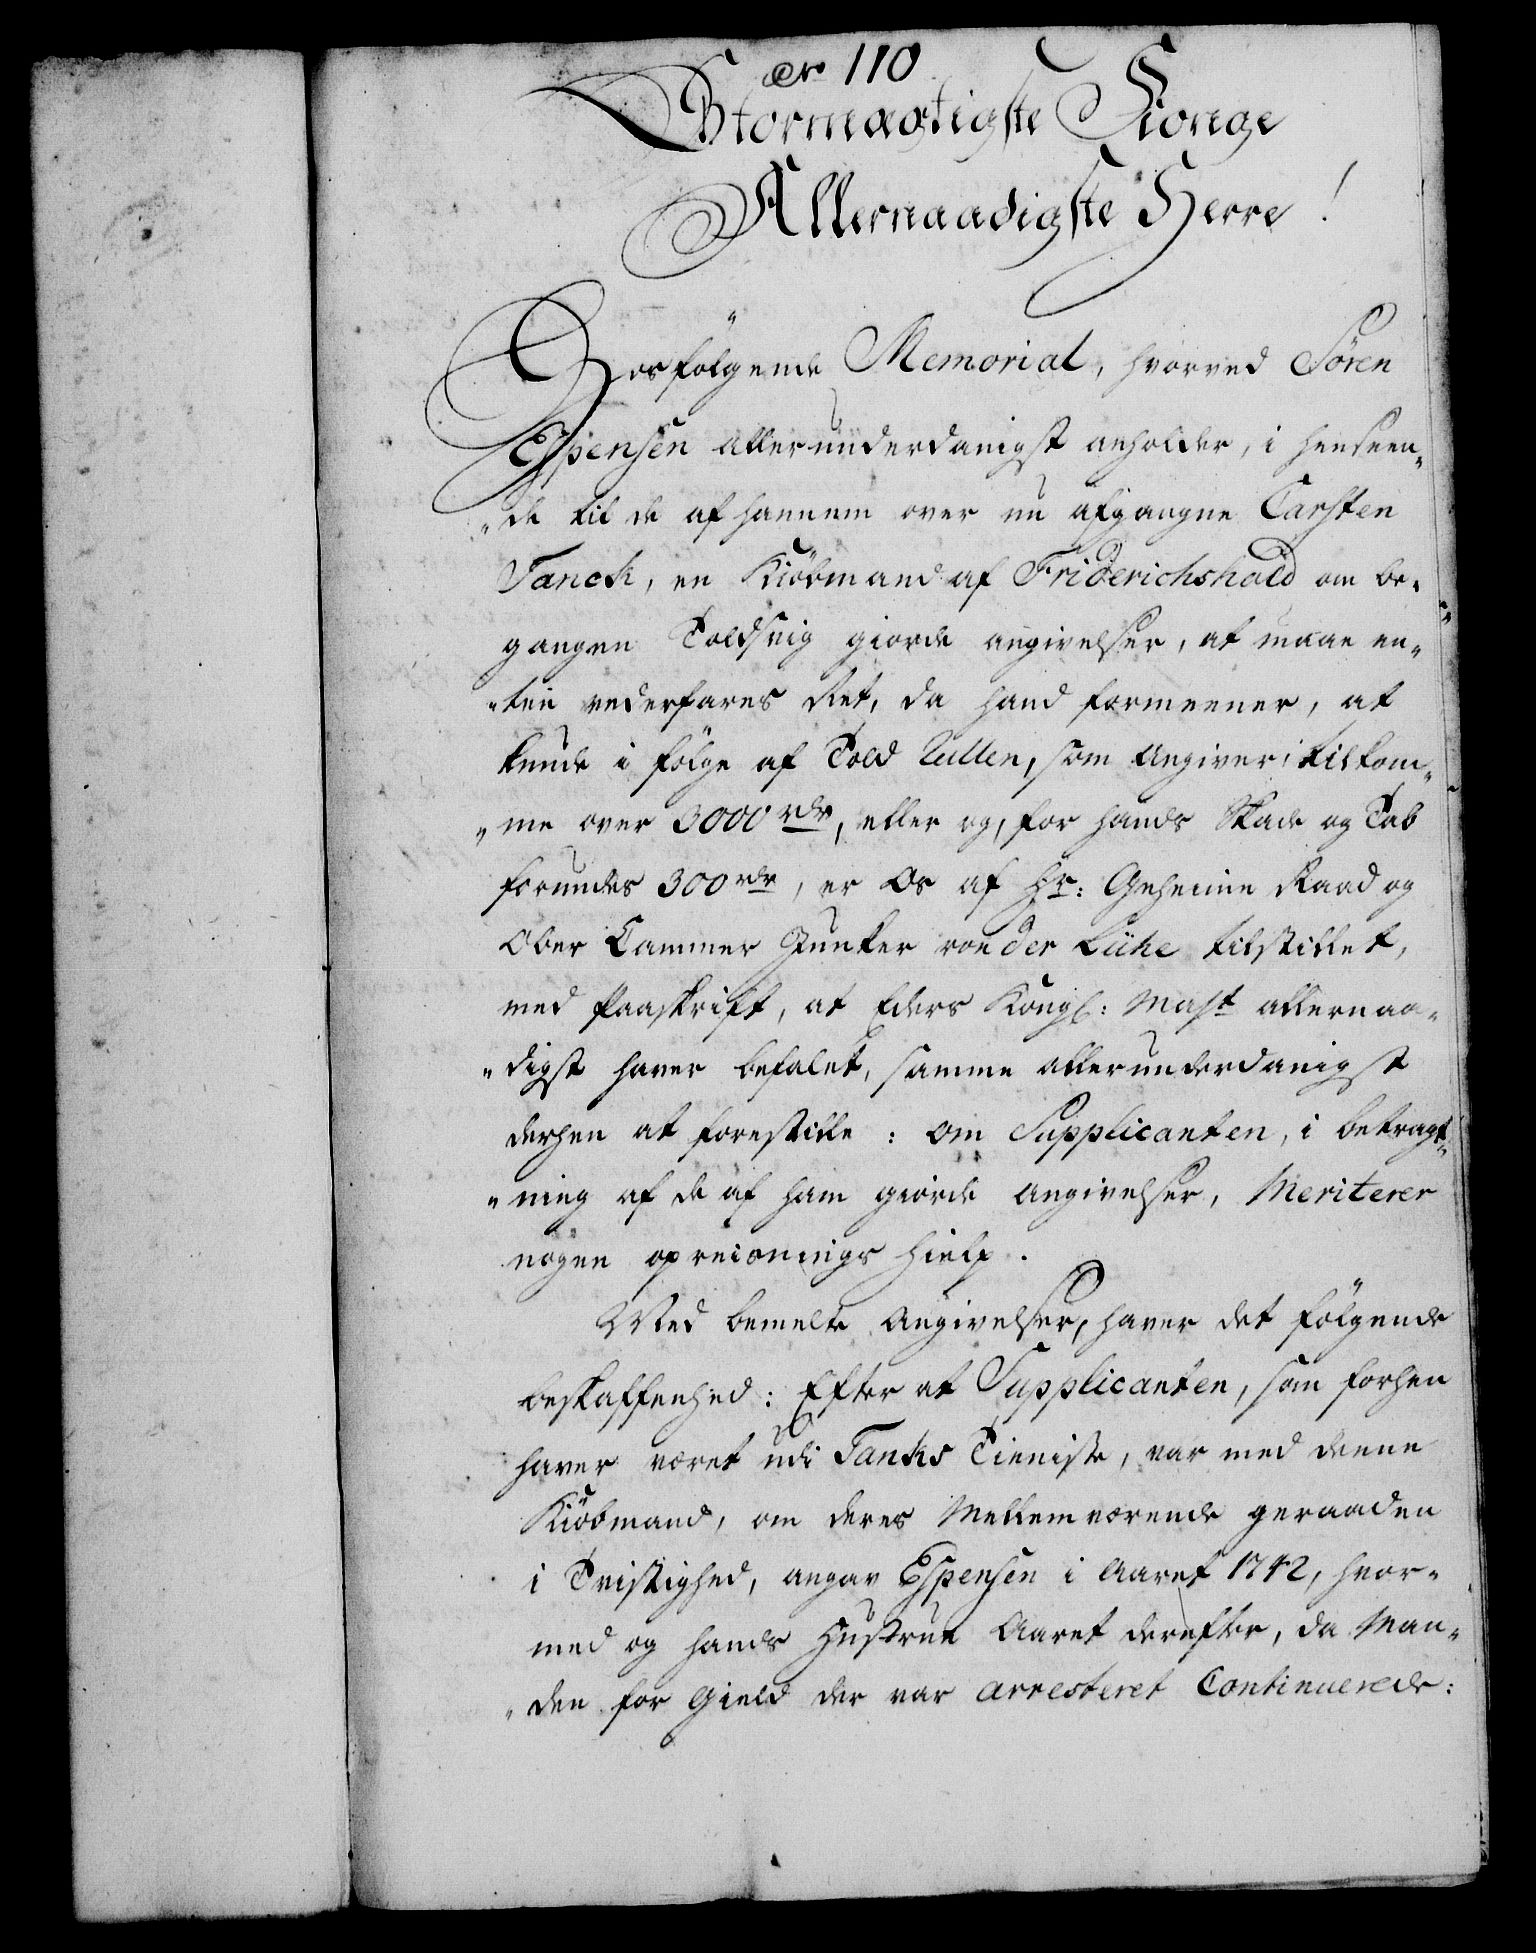 110
Stormægtigste Konge
Allernaadigste Herre!
Hosfölgende Memorial, hvorved Sören
Espensen allerunderdanigst anholder, i henseen„
„de til de af hannem over nu afgangne Carsten
Tanck, en Kiöbmand af Friderichshald om be„
gangen Toldsvig giorde angivelser, at maae en„
„ten vederfares Ret, da hand formeener, at
kunde i fölge af Told Rullen, som Angiver, tilkom„
„me over 3000 rdr, eller og, for hands Skade og Tab
forundes 300 rdr, er Os af Hr: Geheime Raad og
Ober Cammer Junker von der Lühe tilstillet,
med Paaskrift, at Eders Kongl: Mayt allernaa„
„digst haver befalet, samme allerunderdanigst
derhen at forestille: om Supplicanten, i betragt„
„ning af de af ham giorde angivelser, Meriterer
nogen opreisnings hielp.
Med bemelte Angivelser, haver det fölgende
beskaffenhed: Efter at Supplicanten, som forhen
haver været udi Tanks Tieniste, var med denne
Kiöbmand, om deres Mellemværende geraaden
i Tvistighed, angav Espensen i Aaret 1742, hvor„
med og hands Hustrue Aaret derefter, da Man„
„den for Gield der var arresteret Continuerede: